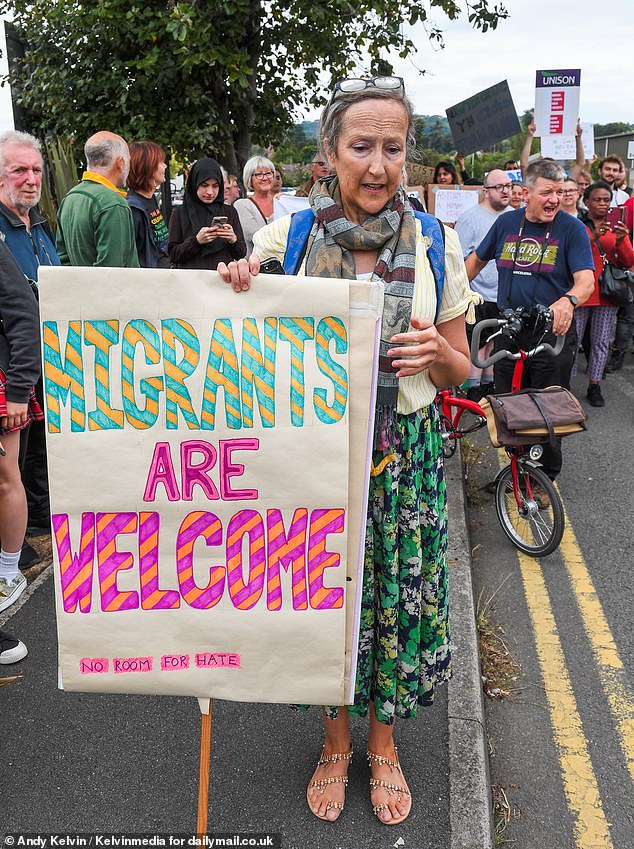 UNISON
Hard Rock
CAFE
MIGRANTS
ARE
WELCOME
NO ROOM FOR HATE
© Andy Kelvin / Kelvinmedia for dailymail.co.uk